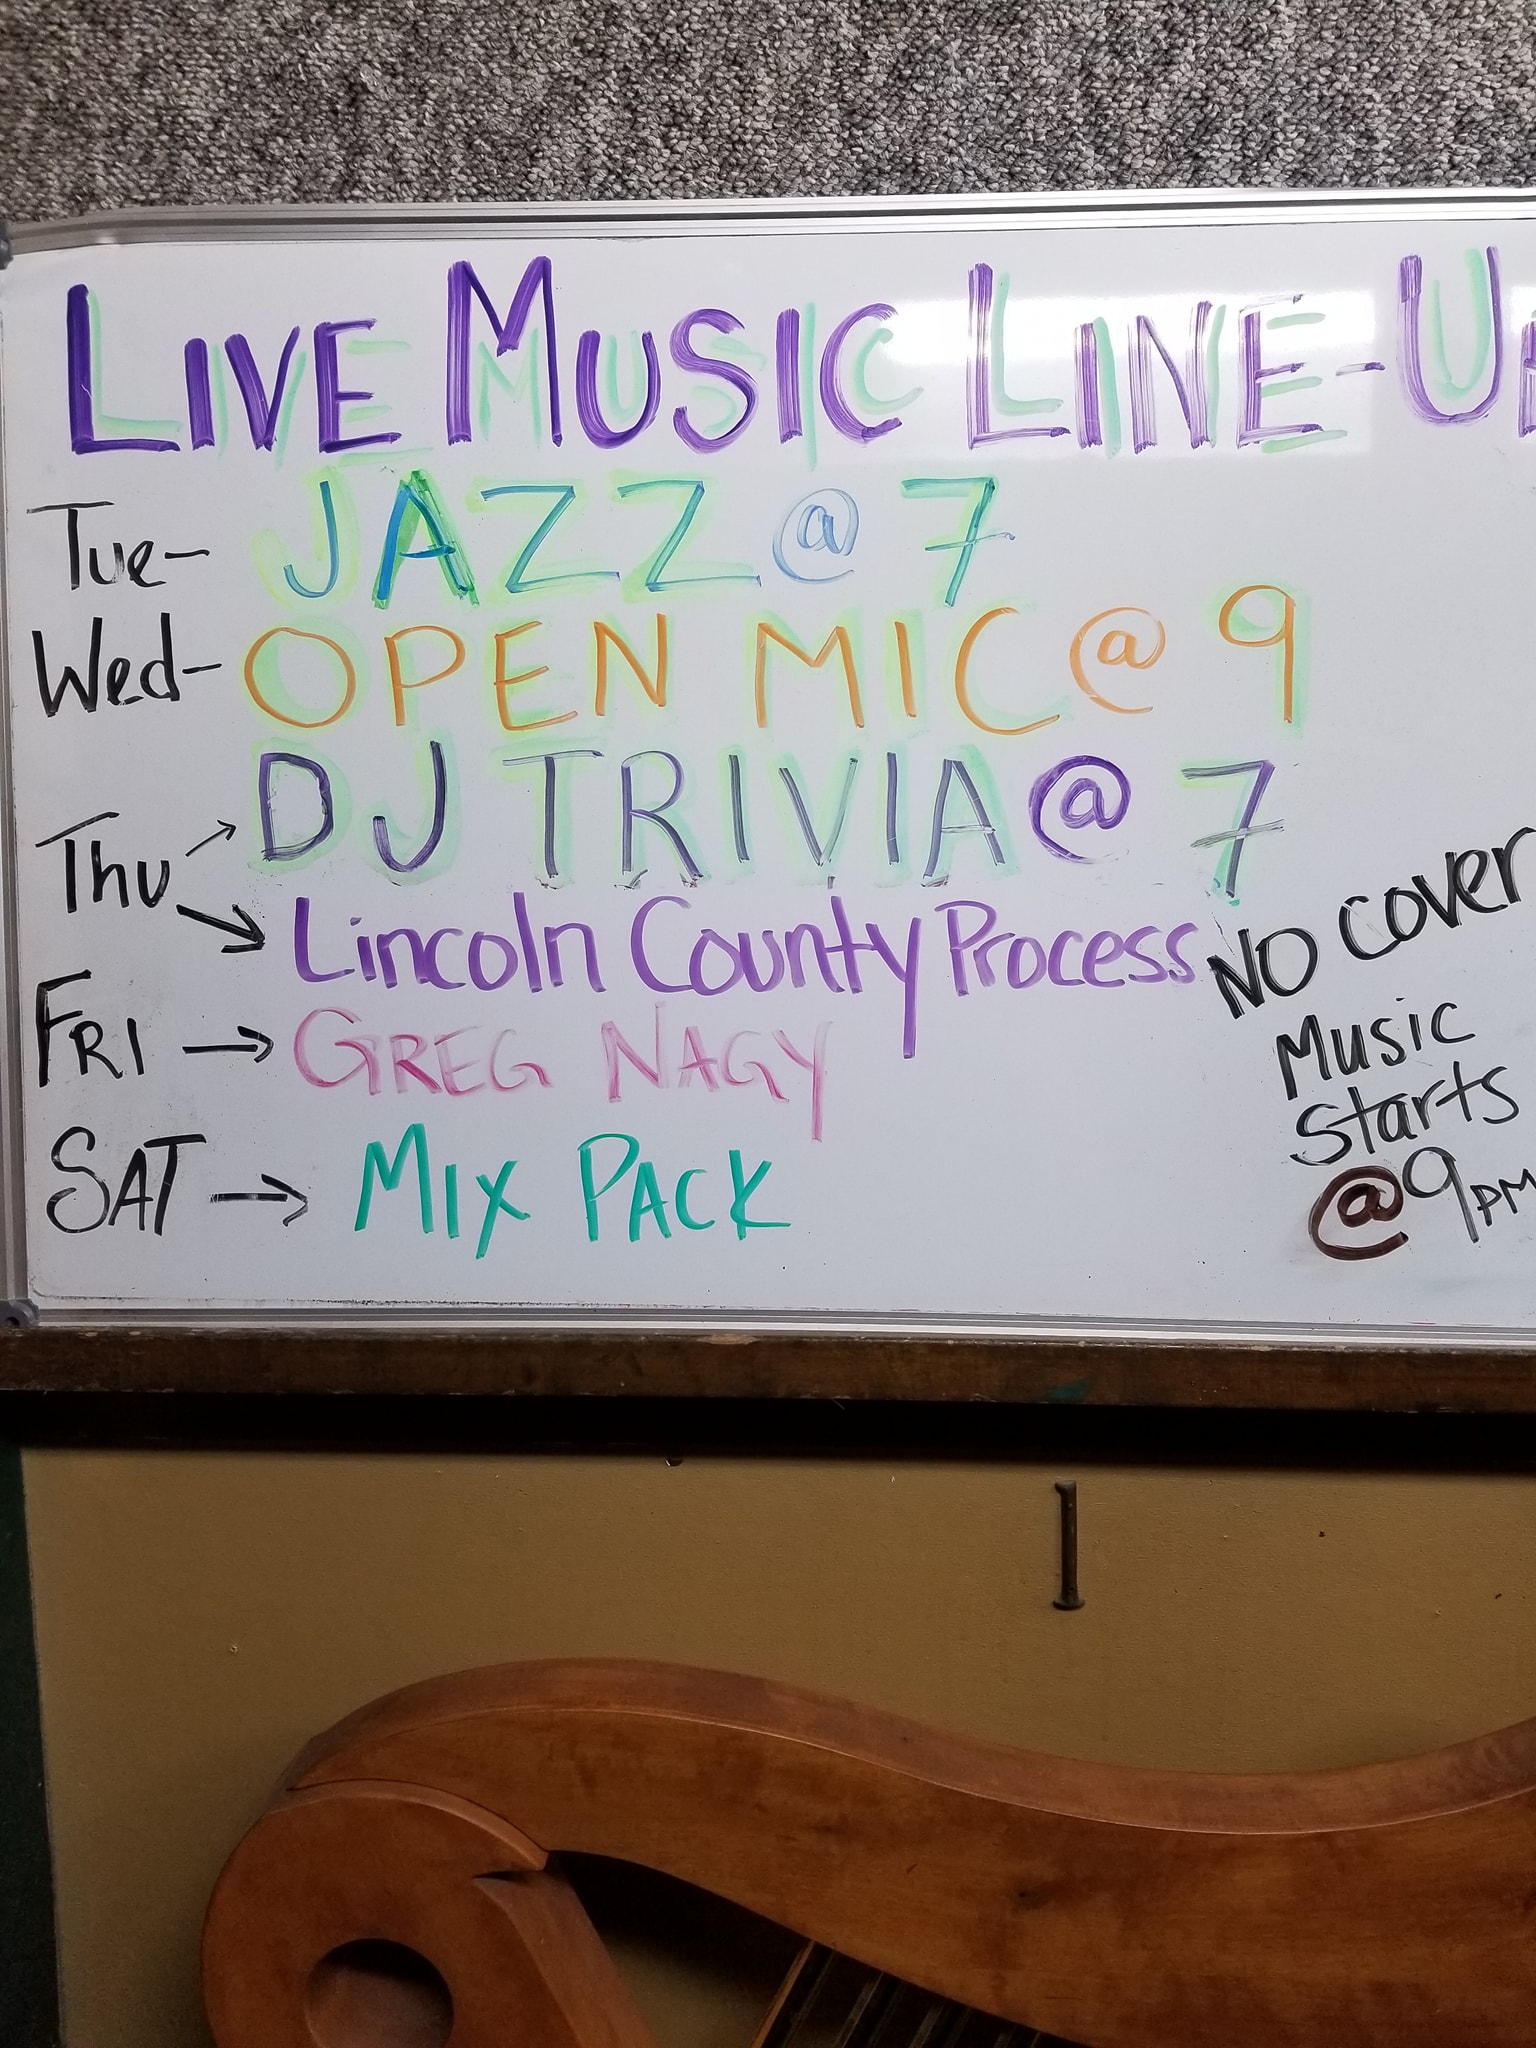 LIVE MUSIC LINE-UP
Tue- JAZZ @ 7
Wed- OPEN MIC @ 9
Thu → DJ TRIVIA @ 7
→ Lincoln County Process
FRI → GREG NAGY
SAT → MIX PACK
NO COVER
Music
Starts
@ 9PM